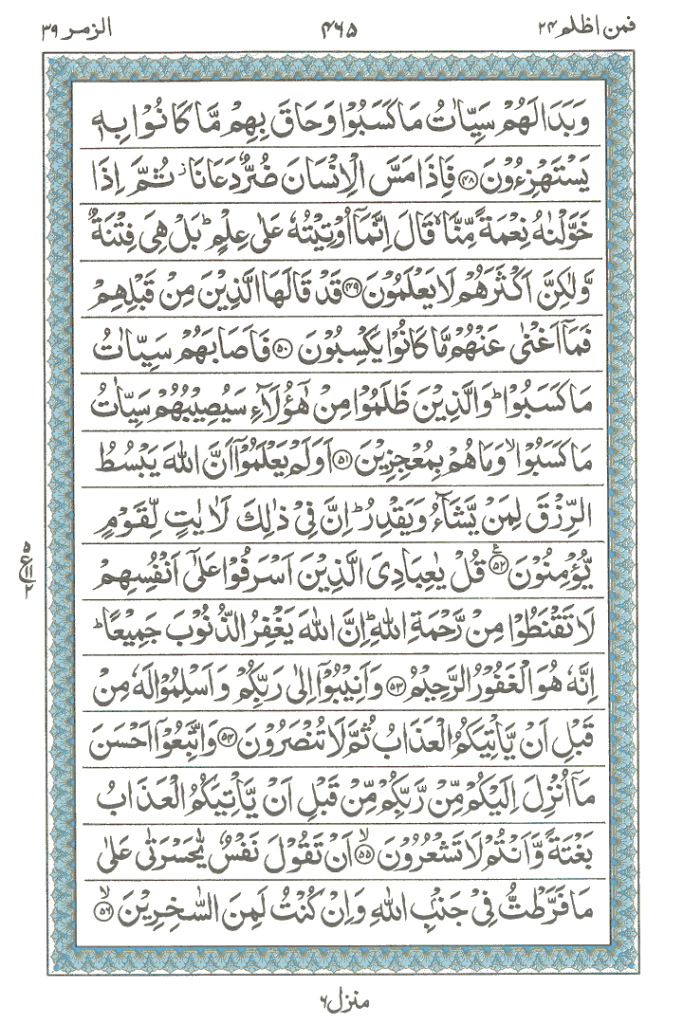 فمن اظلم ٢٤ ٤٦٥ الزمر ٣٩
وَبَدَا لَهُمْ سَيِّاٰتُ مَا كَسَبُوْا وَحَاقَ بِهِمْ مَّا كَانُوْا بِهٖ
يَسْتَهْزِءُوْنَ ﴿٤٨﴾ فَاِذَا مَسَّ الْاِنْسَانَ ضُرٌّ دَعَانَا ز ثُمَّ اِذَا
خَوَّلْنٰهُ نِعْمَةً مِّنَّا ۙ قَالَ اِنَّمَآ اُوْتِيْتُهٗ عَلٰى عِلْمٍ ؕ بَلْ هِيَ فِتْنَةٌ
وَّلٰكِنَّ اَكْثَرَهُمْ لَا يَعْلَمُوْنَ ﴿٤٩﴾ قَدْ قَالَهَا الَّذِيْنَ مِنْ قَبْلِهِمْ
فَمَآ اَغْنٰى عَنْهُمْ مَّا كَانُوْا يَكْسِبُوْنَ ﴿٥٠﴾ فَاَصَابَهُمْ سَيِّاٰتُ
مَا كَسَبُوْا ؕ وَالَّذِيْنَ ظَلَمُوْا مِنْ هٰٓؤُلَآءِ سَيُصِيْبُهُمْ سَيِّاٰتُ
مَا كَسَبُوْا ۙ وَمَا هُمْ بِمُعْجِزِيْنَ ﴿٥١﴾ اَوَلَمْ يَعْلَمُوْٓا اَنَّ اللّٰهَ يَبْسُطُ
الرِّزْقَ لِمَنْ يَّشَآءُ وَيَقْدِرُ ؕ اِنَّ فِيْ ذٰلِكَ لَاٰيٰتٍ لِّقَوْمٍ
يُّؤْمِنُوْنَ ﴿٥٢﴾ ع قُلْ يٰعِبَادِيَ الَّذِيْنَ اَسْرَفُوْا عَلٰٓى اَنْفُسِهِمْ
٥ ع ١١ ٢
لَا تَقْنَطُوْا مِنْ رَّحْمَةِ اللّٰهِ ؕ اِنَّ اللّٰهَ يَغْفِرُ الذُّنُوْبَ جَمِيْعًا ؕ
اِنَّهٗ هُوَ الْغَفُوْرُ الرَّحِيْمُ ﴿٥٣﴾ وَاَنِيْبُوْٓا اِلٰى رَبِّكُمْ وَاَسْلِمُوْا لَهٗ مِنْ
قَبْلِ اَنْ يَّاْتِيَكُمُ الْعَذَابُ ثُمَّ لَا تُنْصَرُوْنَ ﴿٥٤﴾ وَاتَّبِعُوْٓا اَحْسَنَ
مَآ اُنْزِلَ اِلَيْكُمْ مِّنْ رَّبِّكُمْ مِّنْ قَبْلِ اَنْ يَّاْتِيَكُمُ الْعَذَابُ
بَغْتَةً وَّاَنْتُمْ لَا تَشْعُرُوْنَ ﴿٥٥﴾ ۙ اَنْ تَقُوْلَ نَفْسٌ يّٰحَسْرَتٰى عَلٰى
مَا فَرَّطْتُّ فِيْ جَنْۢبِ اللّٰهِ وَاِنْ كُنْتُ لَمِنَ السّٰخِرِيْنَ ﴿٥٦﴾ ۙ
منزل ٦